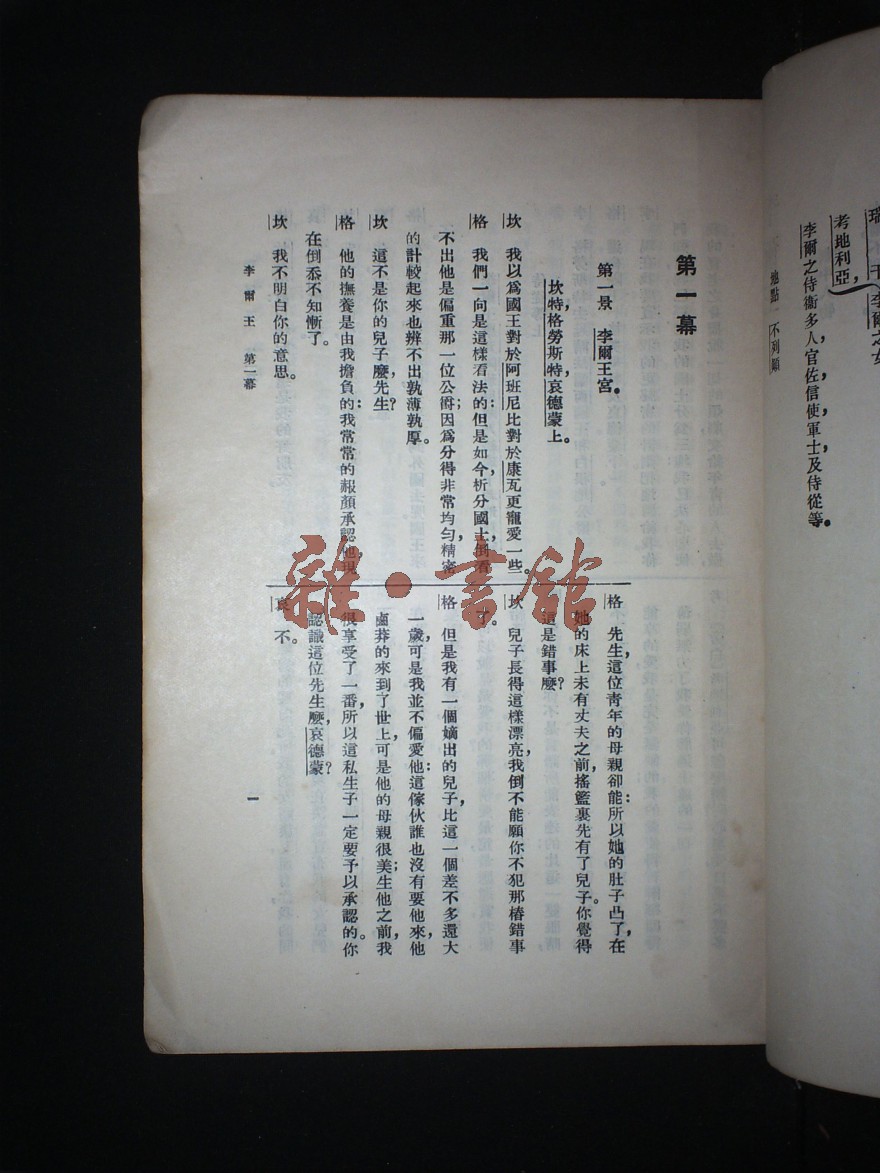 瑞干
李爾之女
考地利亞，
李爾之侍衞多人，官佐，信使，軍士，及侍從等。
地點 不列顛
第一幕
第一景 李爾王宮。
坎特，格勞斯特，哀德蒙上。
坎 我以爲國王對於阿班尼比對於康瓦更寵愛一些。
格 我們一向是這樣看法的：但是如今析分國土，倒看
不出他是偏重那一位公爵；因爲分得非常均勻，精密
的計較起來也辨不出孰薄孰厚。
坎 這不是你的兒子麼，先生？
格 他的撫養是由我擔負的：我常常的赧顏承認他，現
在倒忝不知慚了。
坎 我不明白你的意思。
格 先生，這位青年的母親卻能：所以她的肚子凸了，在
她的床上未有丈夫之前，搖籃裏先有了兒子。你覺得
這是錯事麼？
坎 兒子長得這樣漂亮，我倒不能願你不犯那樁錯事
了。
格 但是我有一個嫡出的兒子，比這一個差不多還大
一歲，可是我並不偏愛他：這傢伙誰也沒有要他來，他
鹵莽的來到了世上，可是他的母親很美；生他之前，我
很享受了一番，所以這私生子一定要予以承認的。你
認識這位先生麼，哀德蒙？
哀 不。
李爾王 第一幕
一
雜·書館